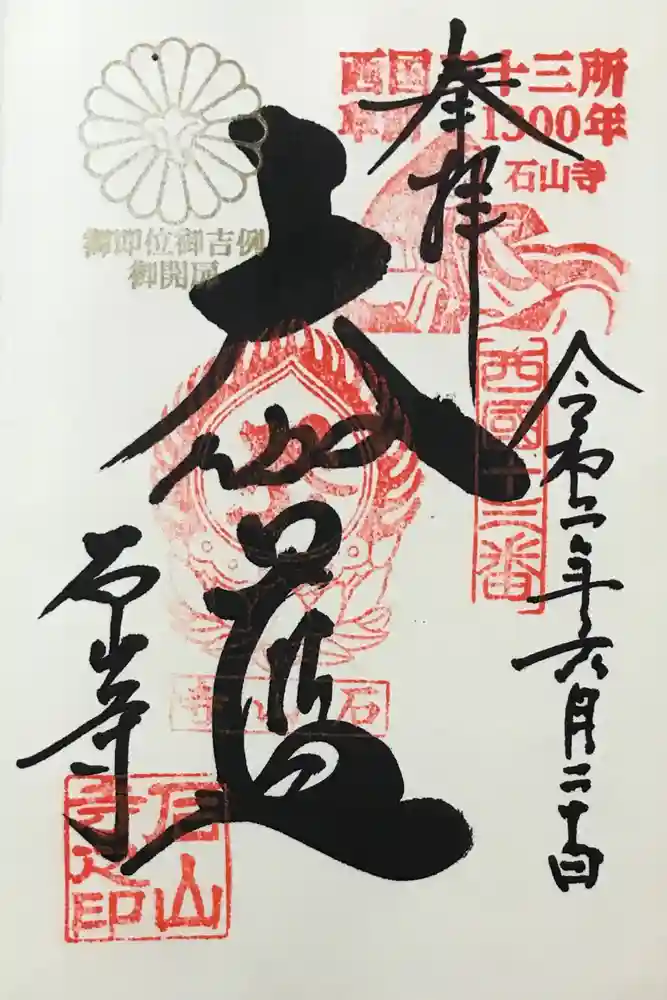 西国三十三所
草創1300年
石山寺
奉拝
西國十三番
令和二年六月二十日
大伽藍
御即位御吉例
御開扉
石山寺
石山寺
石山寺之印